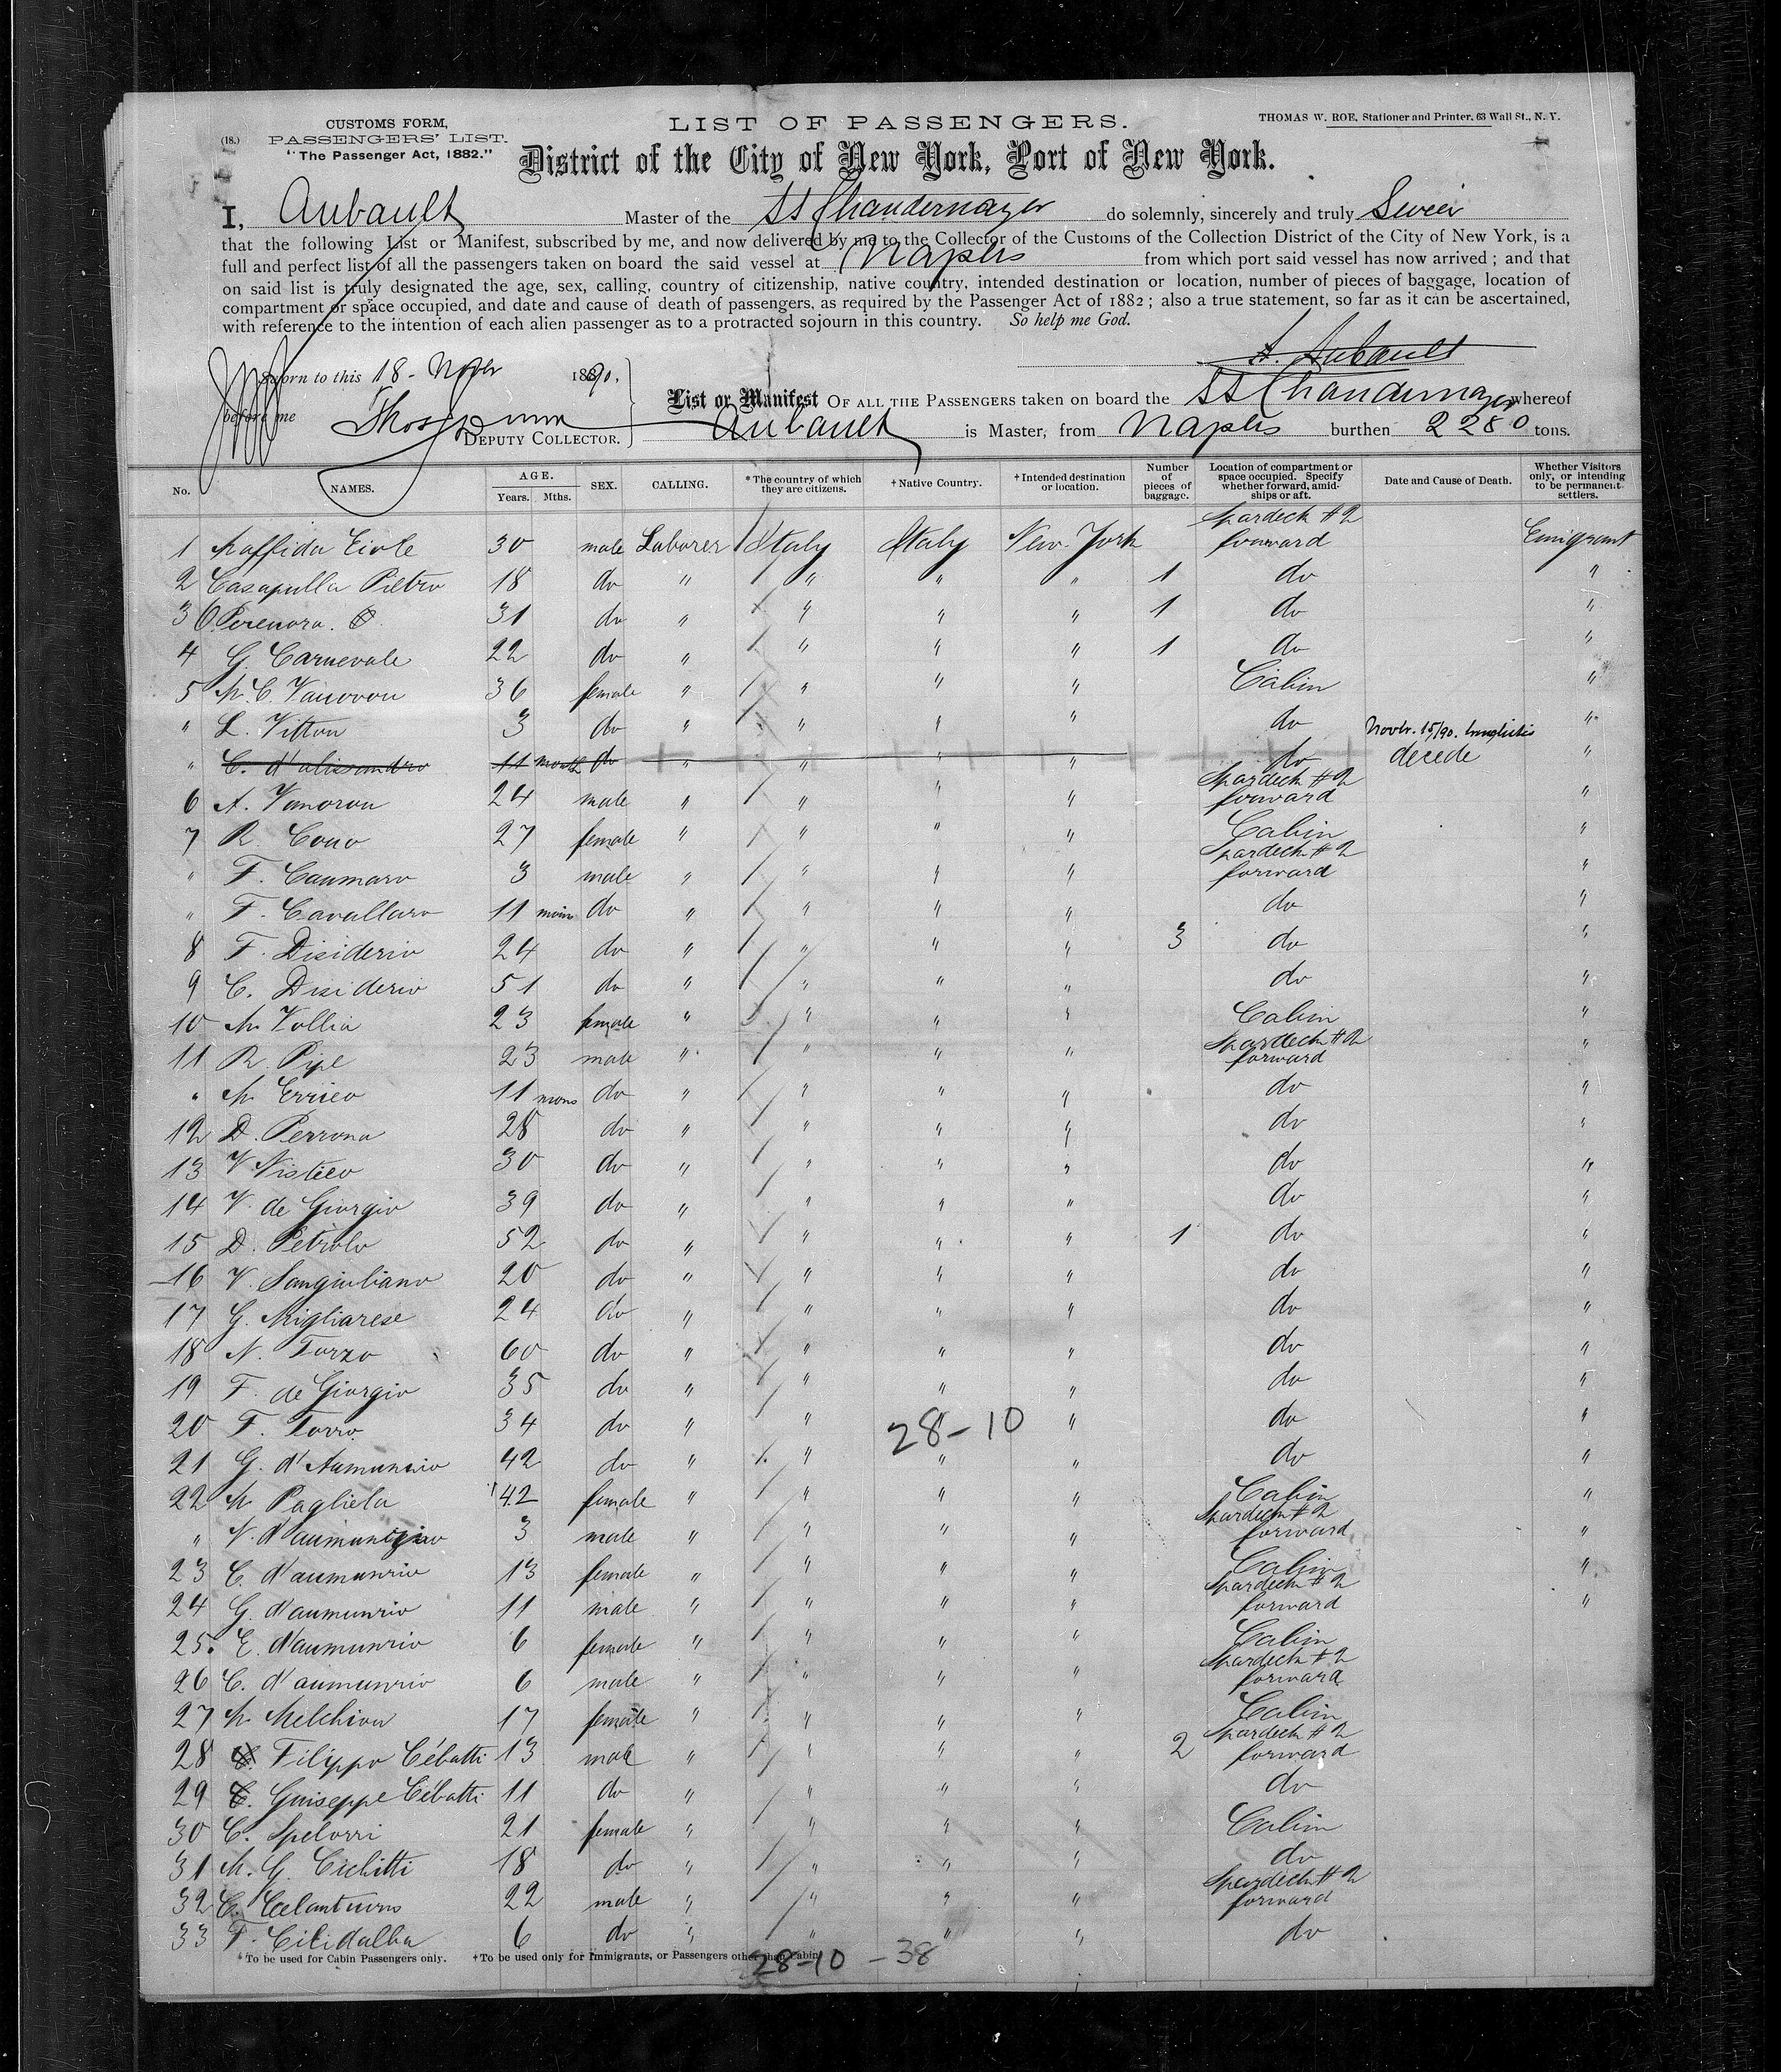 (18.)
CUSTOMS FORM,
PASSENGERS' LIST.
"The Passenger Act, 1882."
LIST OF PASSENGERS.
THOMAS W. ROE, Stationer and Printer, 63 Wall St., N. Y.
District of the City of New York, Port of New York.
I, Aubault Master of the SS Chandernagor do solemnly, sincerely and truly
that the following List or Manifest, subscribed by me, and now delivered by me to the Collector of the Customs of the Collection District of the City of New York, is a
full and perfect list of all the passengers taken on board the said vessel at Naples from which port said vessel has now arrived ; and that
on said list is truly designated the age, sex, calling, country of citizenship, native country, intended destination or location, number of pieces of baggage, location of
compartment or space occupied, and date and cause of death of passengers, as required by the Passenger Act of 1882 ; also a true statement, so far as it can be ascertained,
with reference to the intention of each alien passenger as to a protracted sojourn in this country. So help me God.
A. Aubault
Sworn to this 18 - Nover 1890.
before me
DEPUTY COLLECTOR.
List or Manifest OF ALL THE PASSENGERS taken on board the SS Chandernagor whereof
Aubault is Master, from Naples burthen 2280 tons.
No. NAMES. AGE. Years. Mths. SEX. CALLING. * The country of which they are citizens. † Native Country. † Intended destination or location. Number of pieces of baggage. Location of compartment or space occupied. Specify whether forward, amidships or aft. Date and Cause of Death. Whether Visitors only, or intending to be permanent settlers.
1 Maffida 30 male Laborer Italy Italy New York Spardeck #2 forward Emigrant
2 Casapulla Pietro 18 do " " " " 1 do "
3 31 do " " " " 1 do "
4 G. Carnevale 22 do " " " " 1 do "
5 M. C. Vanovou 36 female " " " " Cabin "
" L. Vitton 3 do " " " " do "
" C. d'alissandro 11 month do " " " " do Novbr. 15/90. decede "
6 A. Vanorou 24 male " " " " Spardeck #2 forward "
7 R. Couo 27 female " " " " Cabin "
" F. Caumaro 3 male " " " " Spardeck #2 forward "
" F. Cavallaro 11 mons do " " " " do "
8 F. Disiderio 24 do " " " " 3 do "
9 C. Disiderio 51 do " " " " do "
10 M. Vollia 23 female " " " " Cabin "
11 R. Pipe 23 male " " " " Spardeck #2 forward "
" M. Errico 11 mons do " " " " do "
12 D. Perrona 28 do " " " " do "
13 V. Nistico 30 do " " " " do "
14 V. de Giorgio 39 do " " " " do "
15 D. Petrolo 52 do " " " " 1 do "
16 V. Sangiuliano 20 do " " " " do "
17 G. Migliarese 24 do " " " " do "
18 N. Forzo 60 do " " " " do "
19 F. de Giorgio 35 do " " " " do "
20 F. Torro 34 do " " " " do "
28-10
21 G. d'Aumunrio 42 do " " " " do "
22 M. Pagliela 42 female " " " " Cabin "
" V. 3 male " " " " Spardeck #2 forward "
23 C. d'aumunrio 13 female " " " " Cabin "
24 G. d'aumunrio 11 male " " " " Spardeck #2 forward "
25. E. d'aumunrio 6 female " " " " Cabin
26 C. d'aumunrio 6 male " " " " Spardeck #2 forward
27 M. Melchiva 17 female " " " " Cabin
28 Filippo Cébatti 13 male " " " " 2 Spardeck #2 forward
29 Guiseppe Cébatti 11 do " " " " do
30 C. Spelorri 21 female " " " " Cabin
31 M. G. Cichitti 18 do " " " " do
32 C. 22 male " " " " Spardeck #2 forward
33 F. Cilidalba 6 do " " " " do
* To be used for Cabin Passengers only. † To be used only for Immigrants, or Passengers other than Cabin.
28-10 - 38